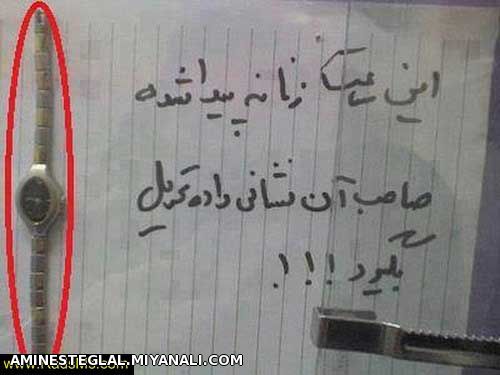 این ساعت زنانه پیدا شده
صاحب آن نشانی داده تحویل
بگیرد !!!.
AMINESTEGLAL.MIYANALI.COM